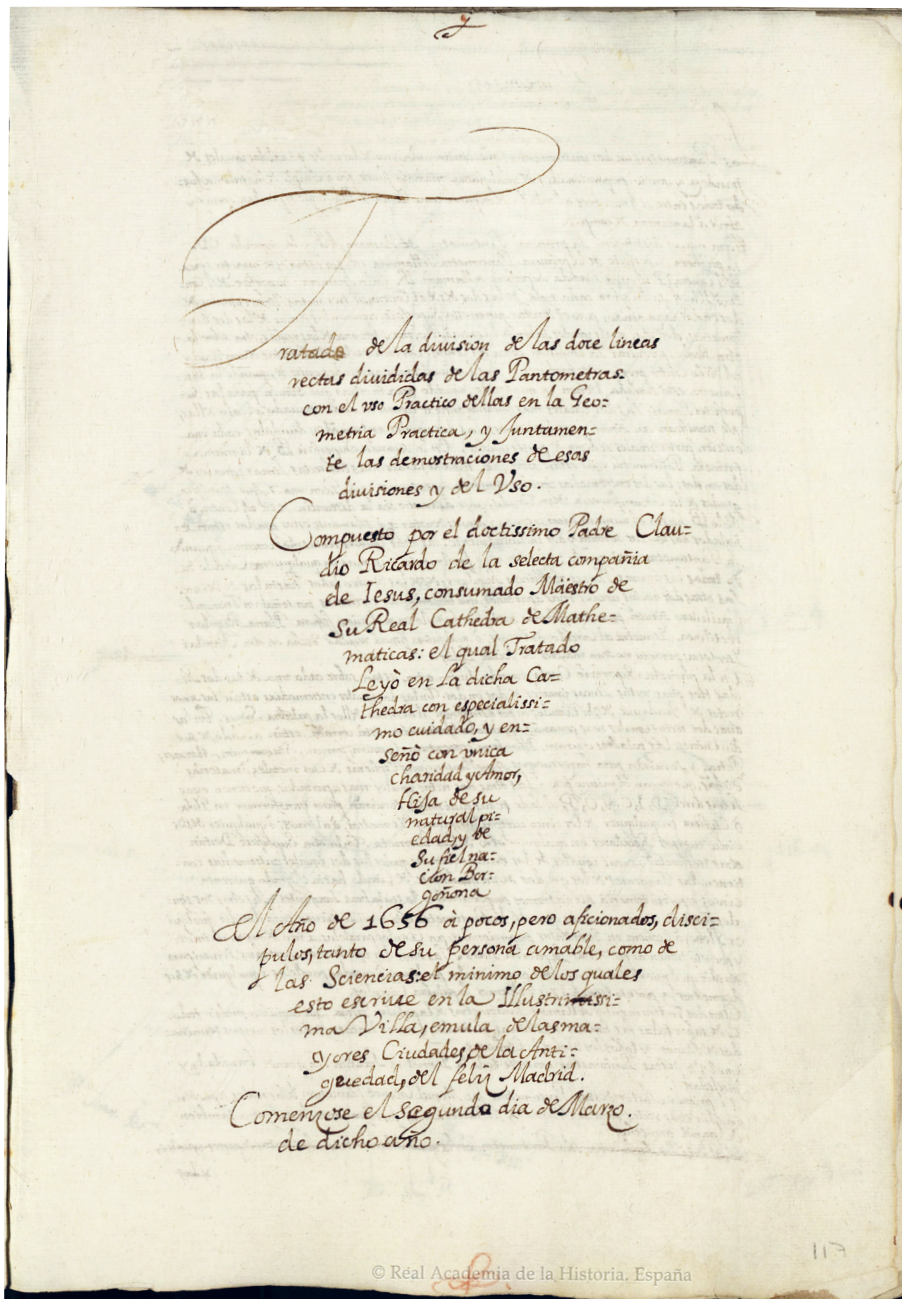 Tratado de la division de las doce lineas
rectas divididas de las Pantometras.
con el vso Practico dellas en la Geo=
metria Practica, y Juntamen=
te las demostraciones de esas
divisiones y del Vso.
Compuesto por el doctissimo Padre Clau=
dio Ricardo de la selecta compañia
de Iesus, consumado Maestro de
Su Real Cathedra de Mathe=
maticas: el qual Tratado
Leyò en La dicha Ca=
thedra con especialissi=
mo cuidado, y en=
señò con vnica
charidad y Amor,
Hija de su
natural pi=
edad, y de
Su fiel na=
cion Bor=
goñona
El Año de 1656 à pocos, pero aficionados, disci=
pulos, tanto de su persona amable, como de
las Sciencias: el minimo de los quales
esto escriue en la Illustrissi=
ma Villa, emula de las ma=
yores Ciudades, de la Anti=
guedad, del feliz Madrid.
Comenzose el segundo dia de Marzo.
de dicho año.
117
© Real Academia de la Historia. España